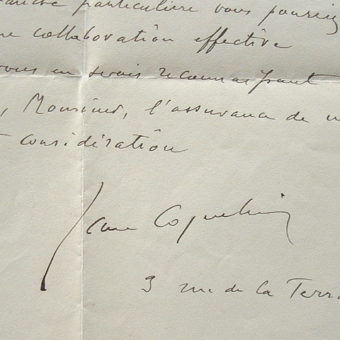 particulière vous pourriez
collaboration effective
vous en serais reconnaissant
, Monsieur, l'assurance de
considération
Jean Coquelin
3 rue de la Terr